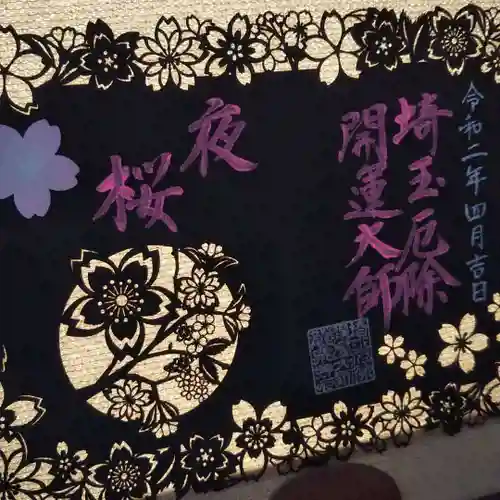 令和二年四月吉日
埼玉厄除
開運大師
夜桜